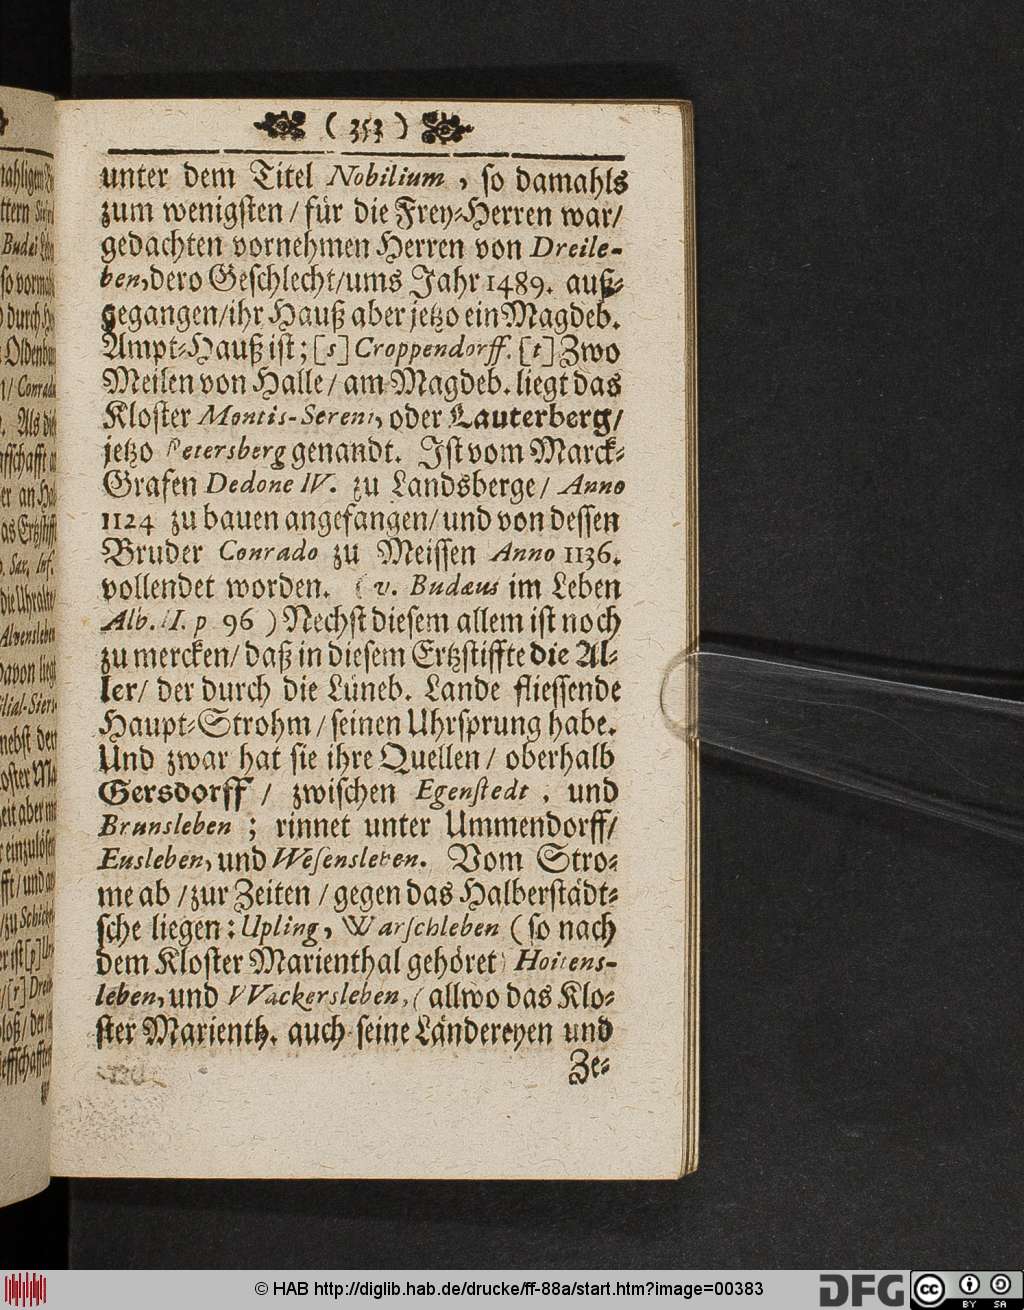 ( 353 )
unter dem Titel Nobilium, so damahls
zum wenigsten / für die Frey-Herren war/
gedachten vornehmen Herren von Dreile-
ben, dero Geschlecht/ums Jahr 1489. auß-
gegangen/ihr Hauß aber jetzo ein Magdeb.
Ampt-Hauß ist; [s] Croppendorff. [t] Zwo
Meilen von Halle / am Magdeb. liegt das
Kloster Montis-Sereni, oder Lauterberg/
jetzo Petersberg genandt. Ist vom Marck-
Grafen Dedone IV. zu Landsberge/ Anno
1124 zu bauen angefangen/ und von dessen
Bruder Conrado zu Meissen Anno 1136.
vollendet worden. ( v. Budæus im Leben
Alb. II. p 96 ) Nechst diesem allem ist noch
zu mercken/ daß in diesem Ertzstiffte die Al-
ler/ der durch die Lüneb. Lande fliessende
Haupt-Strohm / seinen Uhrsprung habe.
Und zwar hat sie ihre Quellen / oberhalb
Gersdorff / zwischen Egenstedt, und
Brunsleben ; rinnet unter Ummendorff/
Eusleben, und Wesensleben. Vom Stro-
me ab /zur Zeiten / gegen das Halberstädt-
sche liegen: Upling, Warschleben (so nach
dem Kloster Marienthal gehöret) Hoitens-
leben, und VVackersleben, (allwo das Klo-
ster Marienth. auch seine Ländereyen und
Ze-
© HAB http://diglib.hab.de/drucke/ff-88a/start.htm?image=00383
DFG
cc BY SA